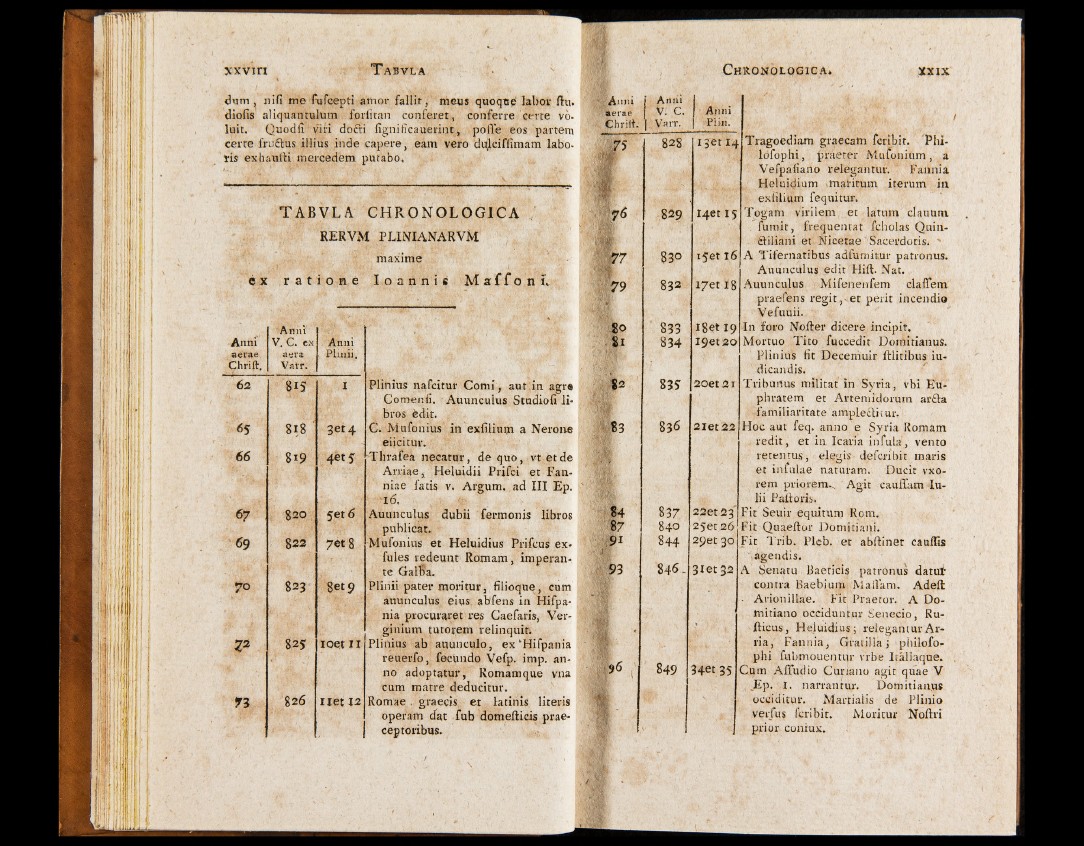 XXVIII TABVLA
dum, niſi me ſuſcepti amor fallit, meus quoque labor ſtu-
dioſis aliquantulum forſitan conferet, conferre certe vo-
luit. Quodſi viri docti ſignificauerint, poſſe eos partem
certe fructus illius inde capere, eam vero dulciſſimam labo-
ris exhauſti mercedem putabo.
TABVLA CHRONOLOGICA
RERVM PLINIANARVM
maxime
ex ratione Ioannis Maſſoni.
Anni aerae Chriſt. Anni V. C. ex aera Varr. Anni Plinii.
62 815 1 Plinius naſcitur Comi, aut in agro
Comenſi. Auunculus Studioſi li-
bros edit.
65 818 3et4 C. Muſonius in exſilium a Nerone
eiicitur.
66 819 4et5 Thraſea necatur, de quo, vt et de
Arriae, Heluidii Priſci et Fan-
niae fatis v. Argum. ad III Ep.
16.
67 820 5et6 Auunculus dubii ſermonis libros
publicat.
69 822 7et8 Muſonius et Heluidius Priſcus ex-
ſules redeunt Romam, imperan-
te Galba.
70 823 8et9 Plinii pater moritur, filioque, cum
auunculus eius abſens in Hiſpa-
nia procuraret res Caeſaris, Ver-
ginium tutorem relinquit.
72 825 10et11 Plinius ab auunculo, ex Hiſpania
reuerſo, ſecundo Veſp. imp. an-
no adoptatur, Romamque vna
cum matre deducitur.
73 826 11et12 Romae graecis et latinis literis
operam dat ſub domeſticis prae-
ceptoribus.
CHRONOLOGICA. XXIX
Anni aerae Chriſt. Anni V. C. Varr. Anni Plin.
75 828 13et14 Tragoediam graecam ſcribit. Phi-
loſophi, praeter Muſonium, a
Veſpaſiano relegantur. Fannia
Heluidium maritum iterum in
exſilium ſequitur.
76 829 14et15 Togam virilem et latum clauum
ſumit, frequentat ſcholas Quin-
ctiliani et Nicetae Sacerdotis.
77 830 15et16 A Tifernatibus adſumitur patronus.
Auunculus edit Hiſt. Nat.
79 832 17et18 Auunculus Miſenenſem claſſem
praeſens regit, et perit incendio
Veſuuii.
80 833 18et19 In foro Noſter dicere incipit.
81 834 19et20 Mortuo Tito ſuccedit Domitianus.
Plinius fit Decemuir ſtlitibus iu-
dicandis.
82 835 20et21 Tribunus militat in Syria, vbi Eu-
phratem et Artemidorum arcta
familiaritate amplectitur.
83 836 21et22 Hoc aut ſeq. anno e Syria Romam
redit, et in Icaria inſula, vento
retentus, elegis deſcribit maris
et inſulae naturam. Ducit vxo-
rem priorem. Agit cauſſam Iu-
lii Paſtoris.
84 837 22et23 Fit Seuir equitum Rom.
87 840 25et26 Fit Quaeſtor Domitiani.
91 844 29et30 Fit Trib. Pleb. et abſtinet cauſſis
agendis.
93 846 31et32 A Senatu Baeticis patronus datur
contra Baebium Maſſam. Adeſt
Arionillae. Fit Praetor. A Do-
mitiano occiduntur Senecio, Ru-
ſticus, Heluidius; relegantur Ar-
ria, Fannia, Gratilla; philoſo-
phi ſubmouentur vrbe Italiaque.
96 849 34et35 Cum Aſſudio Curiano agit quae V
Ep. 1. narrantur. Domitianus
occiditur. Martialis de Plinio
verſus ſcribit. Moritur Noſtri
prior coniux.